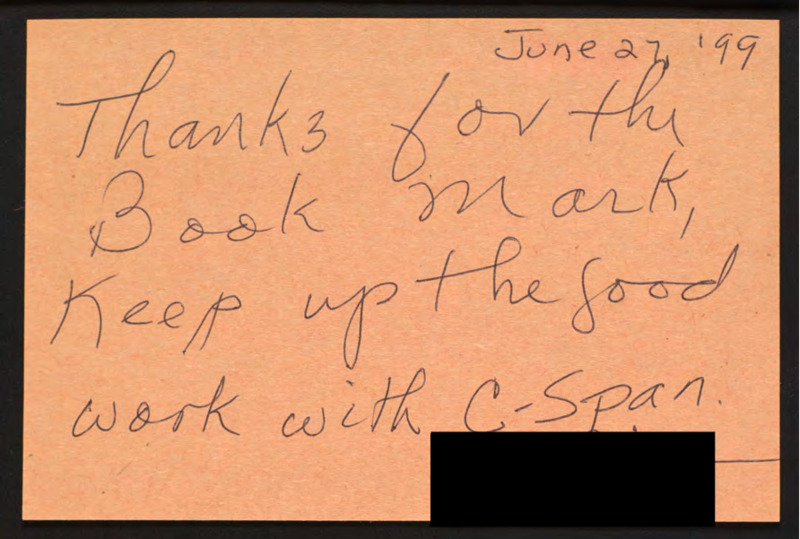 June 27, '99
Thanks for the
Book Mark,
Keep up the good
work with C-Span.